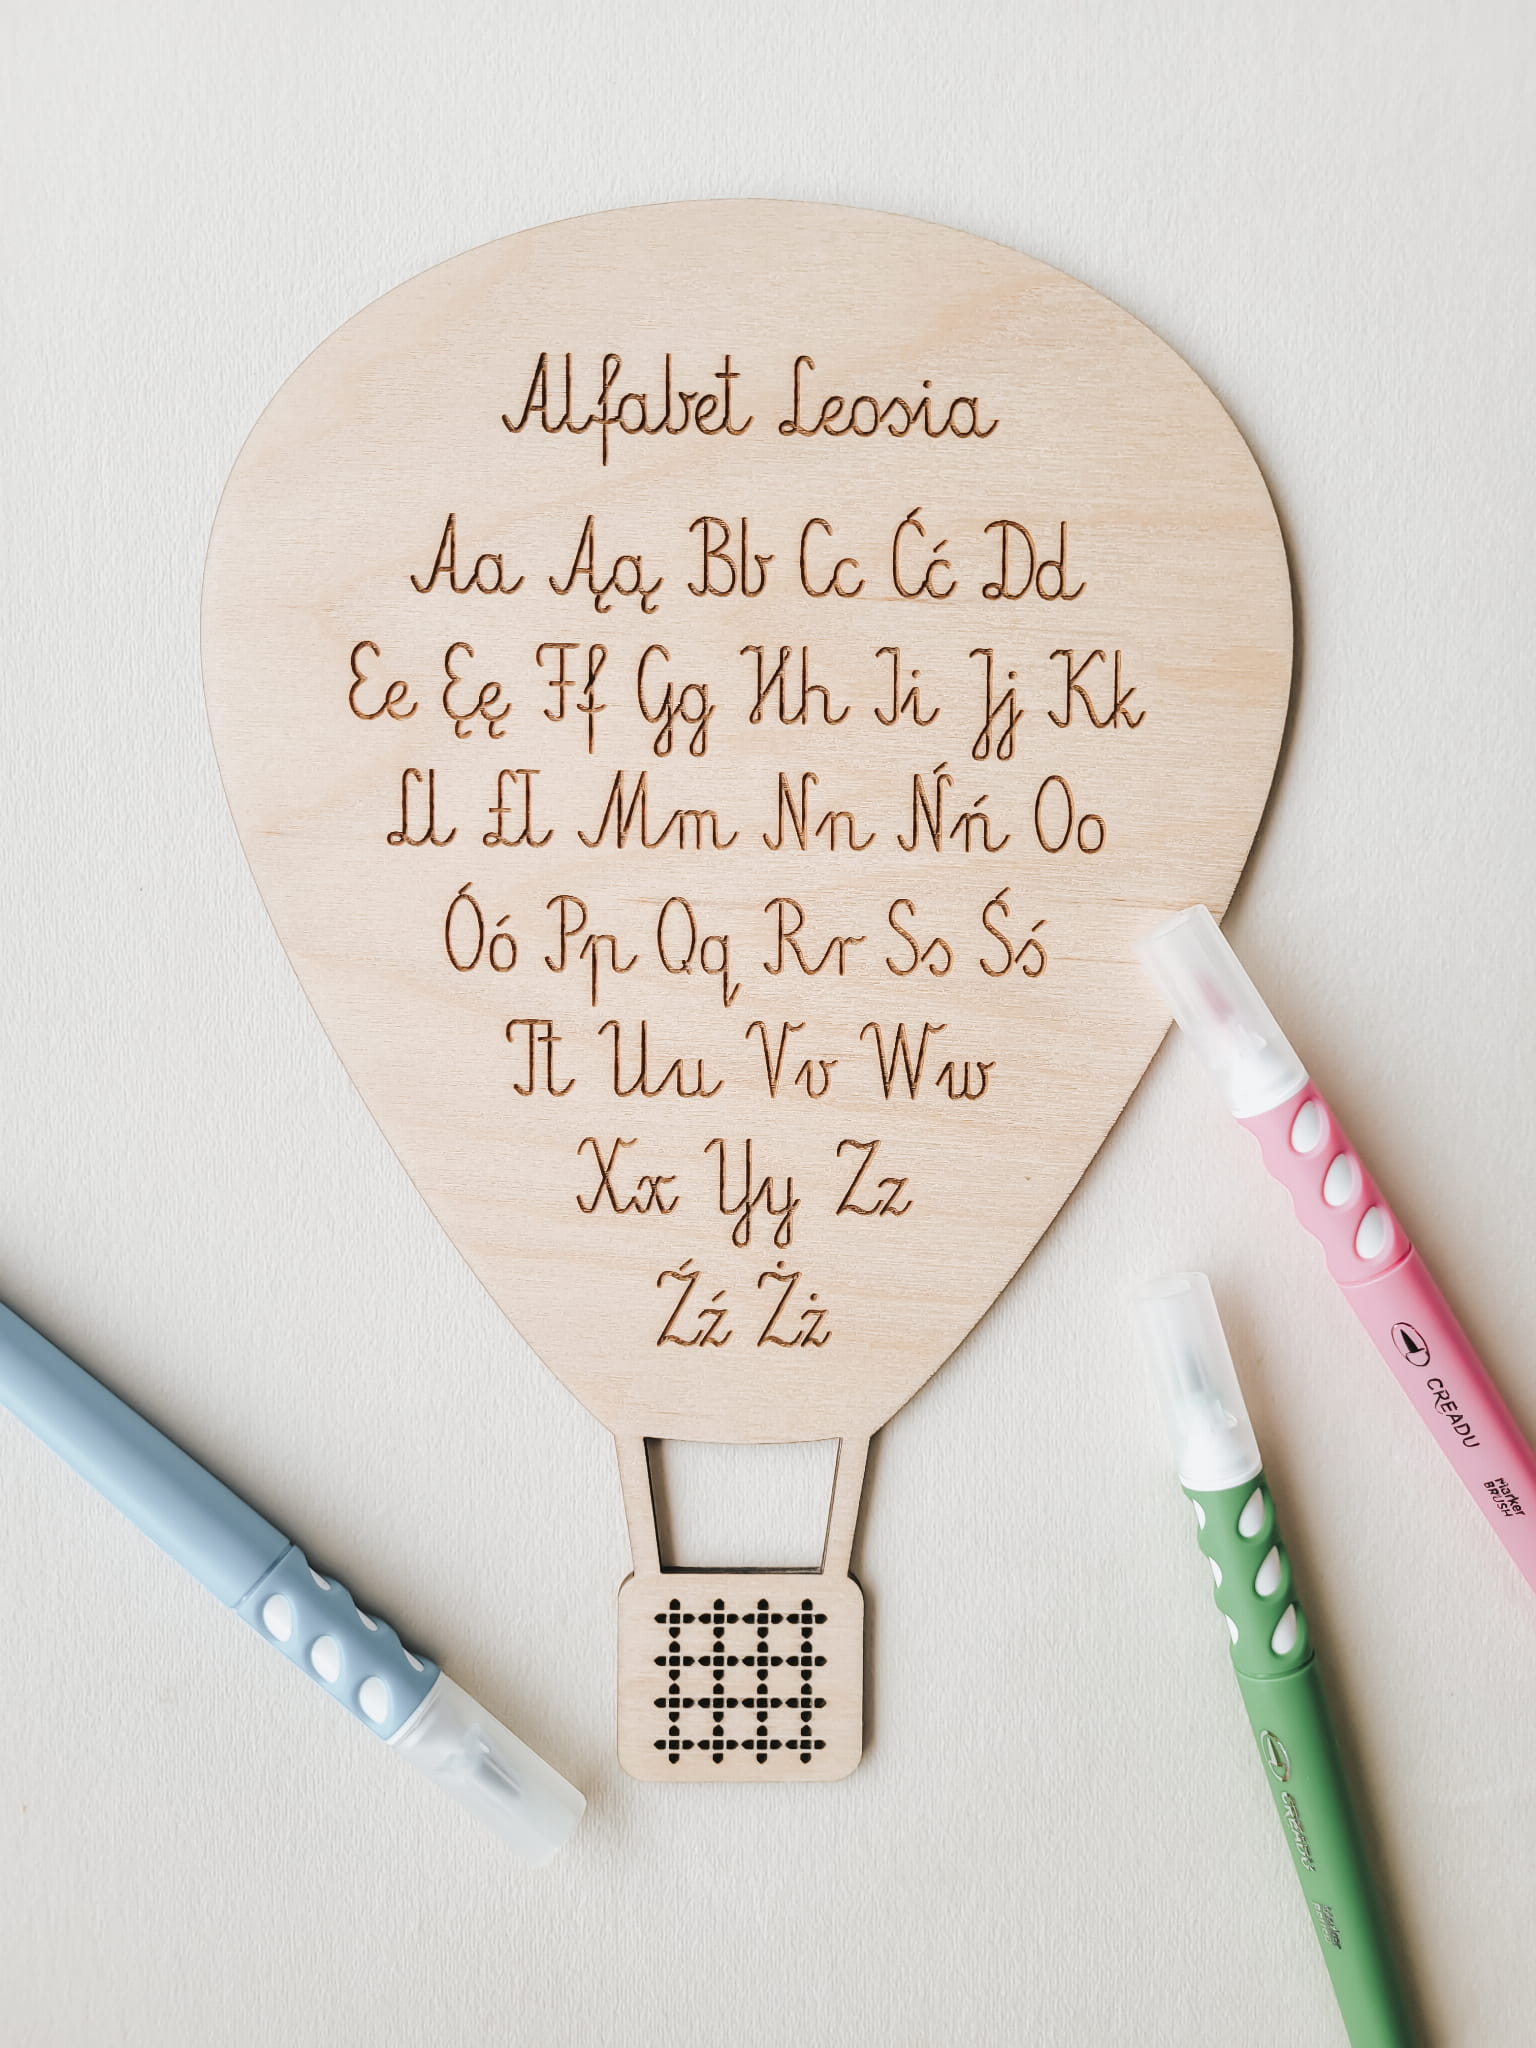 Alfabet Leosia
Aa Ąą Bb Cc Ćć Dd
Ee Ęę Ff Gg Hh Ii Jj Kk
Ll Łł Mm Nn Ńń Oo
Óó Pp Qq Rr Ss Śś
Tt Uu Vv Ww
Xx Yy Zz
Źź Żż
CREADU
marker
BRUSH
CREADU
marker
BRUSH